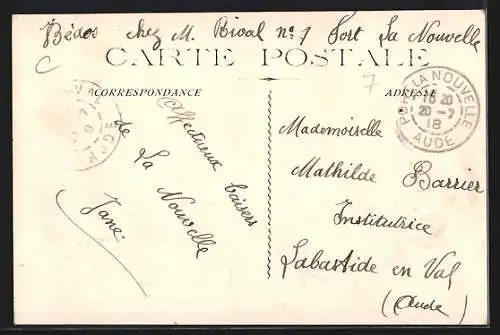 Bédos chez M. Rival nº 7 Port La Nouvelle
CARTE POSTALE
CORRESPONDANCE
ADRESSE
Affectueux baisers
de La Nouvelle
Jane
7
PORT LA NOUVELLE
15 20
20 - 7
18
AUDE
Mademoiselle
Mathilde Barrier
Institutrice
Labastide en Val
(Aude)